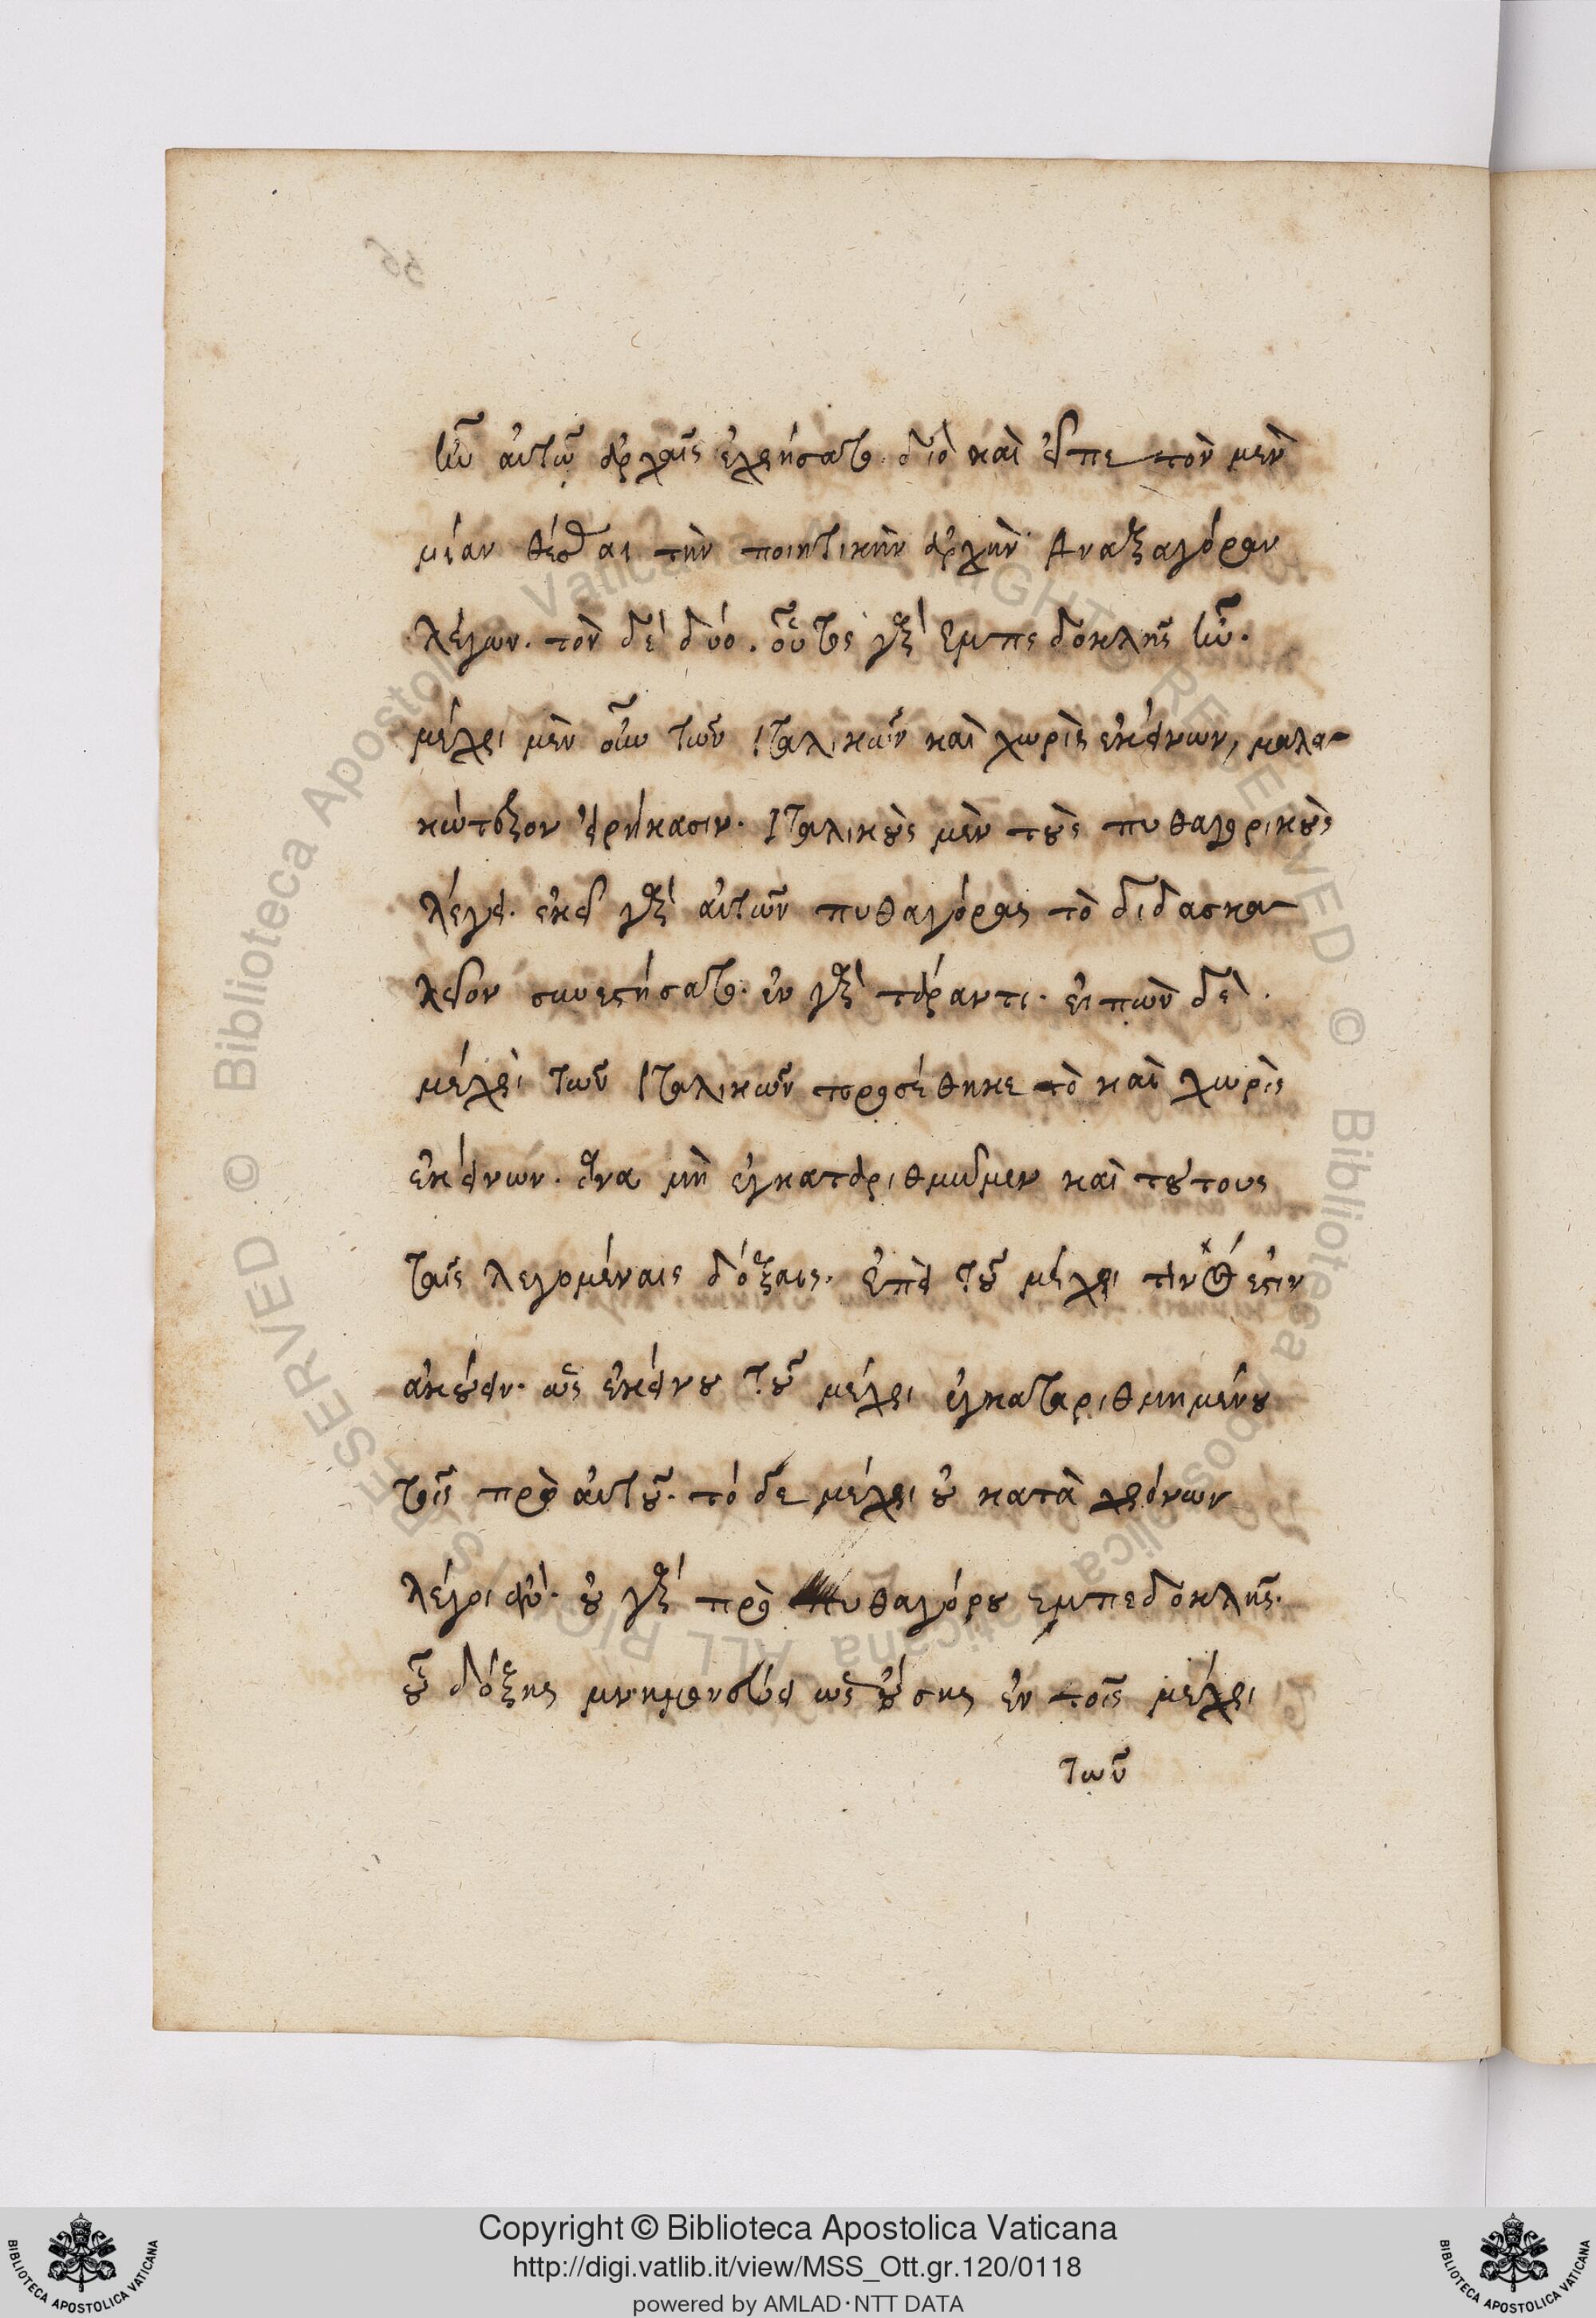 ἦν αὐτῷ ἀρχαῖς ἐχρήσατο. διὸ καὶ εἶπε τὸν μὲν
μίαν θέσθαι τὴν ποιητικὴν ἀρχὴν Ἀναξαγόραν
λέγων. τὸν δὲ δύο. οὗτος γὰρ Ἐμπεδοκλῆς ἦν.
μέχρι μὲν οὖν τῶν Ἰταλικῶν καὶ χωρὶς ἐκείνων, μαλα-
κώτερον εἰρήκασιν. Ἰταλικοὺς μὲν τοὺς πυθαγορικοὺς
λέγει. ἐκεῖ γὰρ αὐτῶν πυθαγόρας τὸ διδασκα-
λεῖον συνεστήσατο. ἐν γὰρ τάραντι. εἰπὼν δὲ.
μέχρι τῶν Ἰταλικῶν προσέθηκε τὸ καὶ χωρὶς
ἐκείνων. ἵνα μὴ ἐγκαταριθμῶμεν καὶ τούτους
ταῖς λεγομέναις δόξαις. ἐπεὶ τοῦ μέχρι τινός ἐστιν
ἀκούειν. ὡς ἐκείνου τοῦ μέχρι ἐγκαταριθμημένου
τοῖς πρὸ αὐτοῦ. τὸ δὲ μέχρι οὐ κατὰ χρόνων
λέγοι ἄν. οὐ γὰρ πρὸ πυθαγόρου Ἐμπεδοκλῆς.
οὗ δόξης μνημονεύει ὡς οὔσης ἐν τοῖς μέχρι
τῶν
Copyright © Biblioteca Apostolica Vaticana
http://digi.vatlib.it/view/MSS_Ott.gr.120/0118
powered by AMLAD·NTT DATA